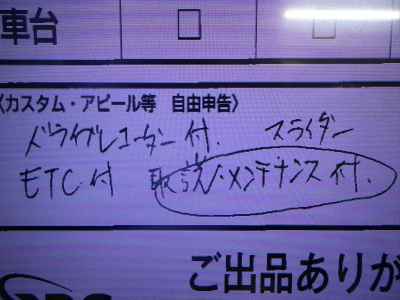 車台 □ □
〈カスタム・アピール等 自由申告〉
ドライブレコーダー付. スライダー
ETC付 取説/メンテナンス付.
ご出品ありが